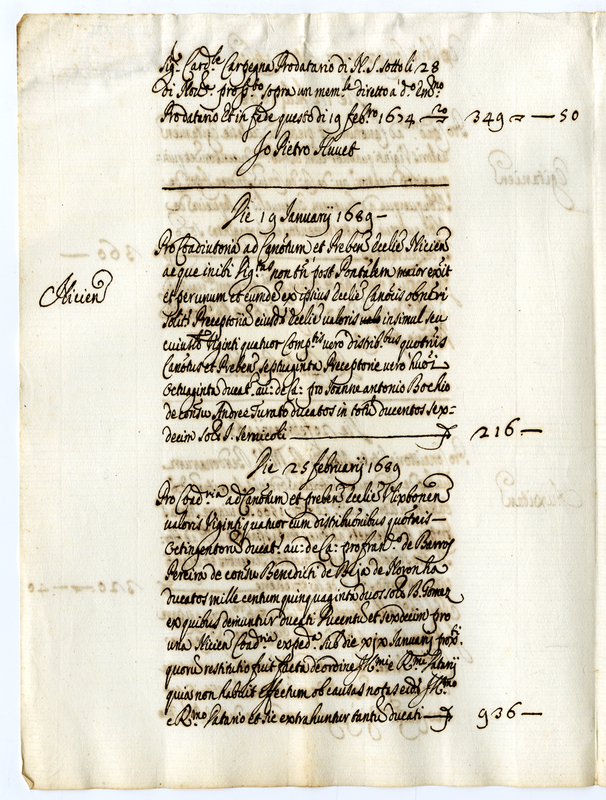 Sigr. Cardle. Carpegna Prodatario di N. S. sotto li 28
di Nove. pross.to sopra un memle. diretto a do. Emmo.
Prodatario et in fede questo di 19 febro. 1674 349 — 50
Io Pietro Huvet
Die 19 Januarij 1689 —
Nicien
Pro Coadiutoria ad Canotum et Preben Ecclie Nicien
ac que inibi post Pontalem maior exit
et per unum et eumde ex ipsius Ecclie Canocis obtineri
solit Preceptoria eiusd Ecclie valoris insimul seu
Viginti quatuor vero distribbus quotnis
Canotus et Preben septuaginta Preceptorie vero huoi
Octuaginta ducat. au: de Ca: pro Joanne Antonio Bockio
de consu Andree Turato ducatos in totu ducentos sex-
decim sol. J. Sernicoli 216. —
Die 25 februarij 1689
Pro Coadria ad Canotum et preben Ecclie Ulixbonen
valoris Viginti quatuor cum distributionibus quotnis —
Octingentoru ducat. au: de Ca: pro franco. de Barros
Pereira de consu Benedicti de Beja de Noronha
ducatos mille centum quinquaginta duos sol. B. Gomez
ex quibus demuntur ducati Ducenti et sexdecim pro
una Nicien Coadria expeda. sub die xjx Januarij proxi.
quoru restitutio fuit facta de ordine Illmi et Rmi Datarij
quia non habuit effectum ob causas notas eid Illmo
e Rmo Datario et sic extrahuntur tantu ducati — 936 —